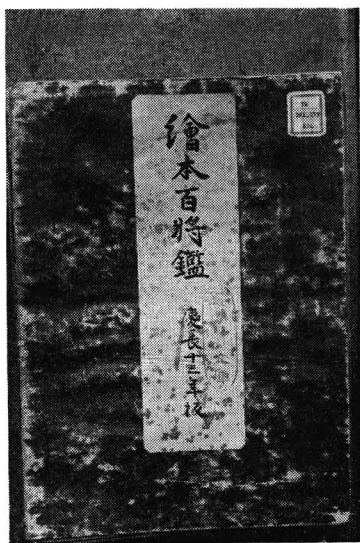 繪本百將鑑
慶長十三年板